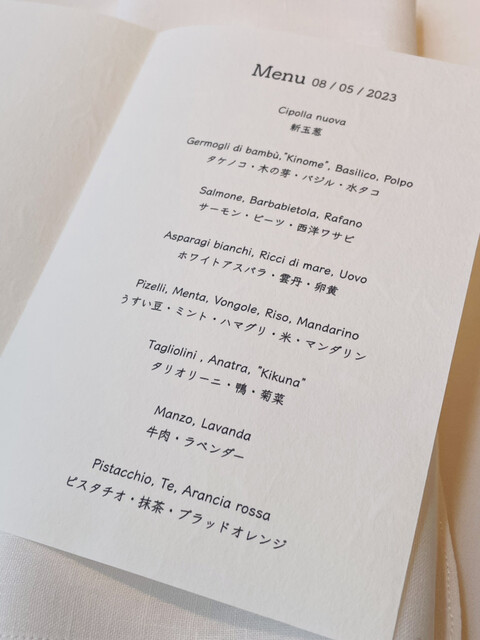 Menu 08 / 05 / 2023
Cipolla nuova
新玉葱
Germogli di bambù,"Kinome", Basilico, Polpo
タケノコ・木の芽・バジル・水タコ
Salmone, Barbabietola, Rafano
サーモン・ビーツ・西洋ワサビ
Asparagi bianchi, Ricci di mare, Uovo
ホワイトアスパラ・雲丹・卵黄
Pizelli, Menta, Vongole, Riso, Mandarino
うすい豆・ミント・ハマグリ・米・マンダリン
Tagliolini , Anatra, "Kikuna"
タリオリーニ・鴨・菊菜
Manzo, Lavanda
牛肉・ラベンダー
Pistacchio, Te, Arancia rossa
ピスタチオ・抹茶・ブラッドオレンジ